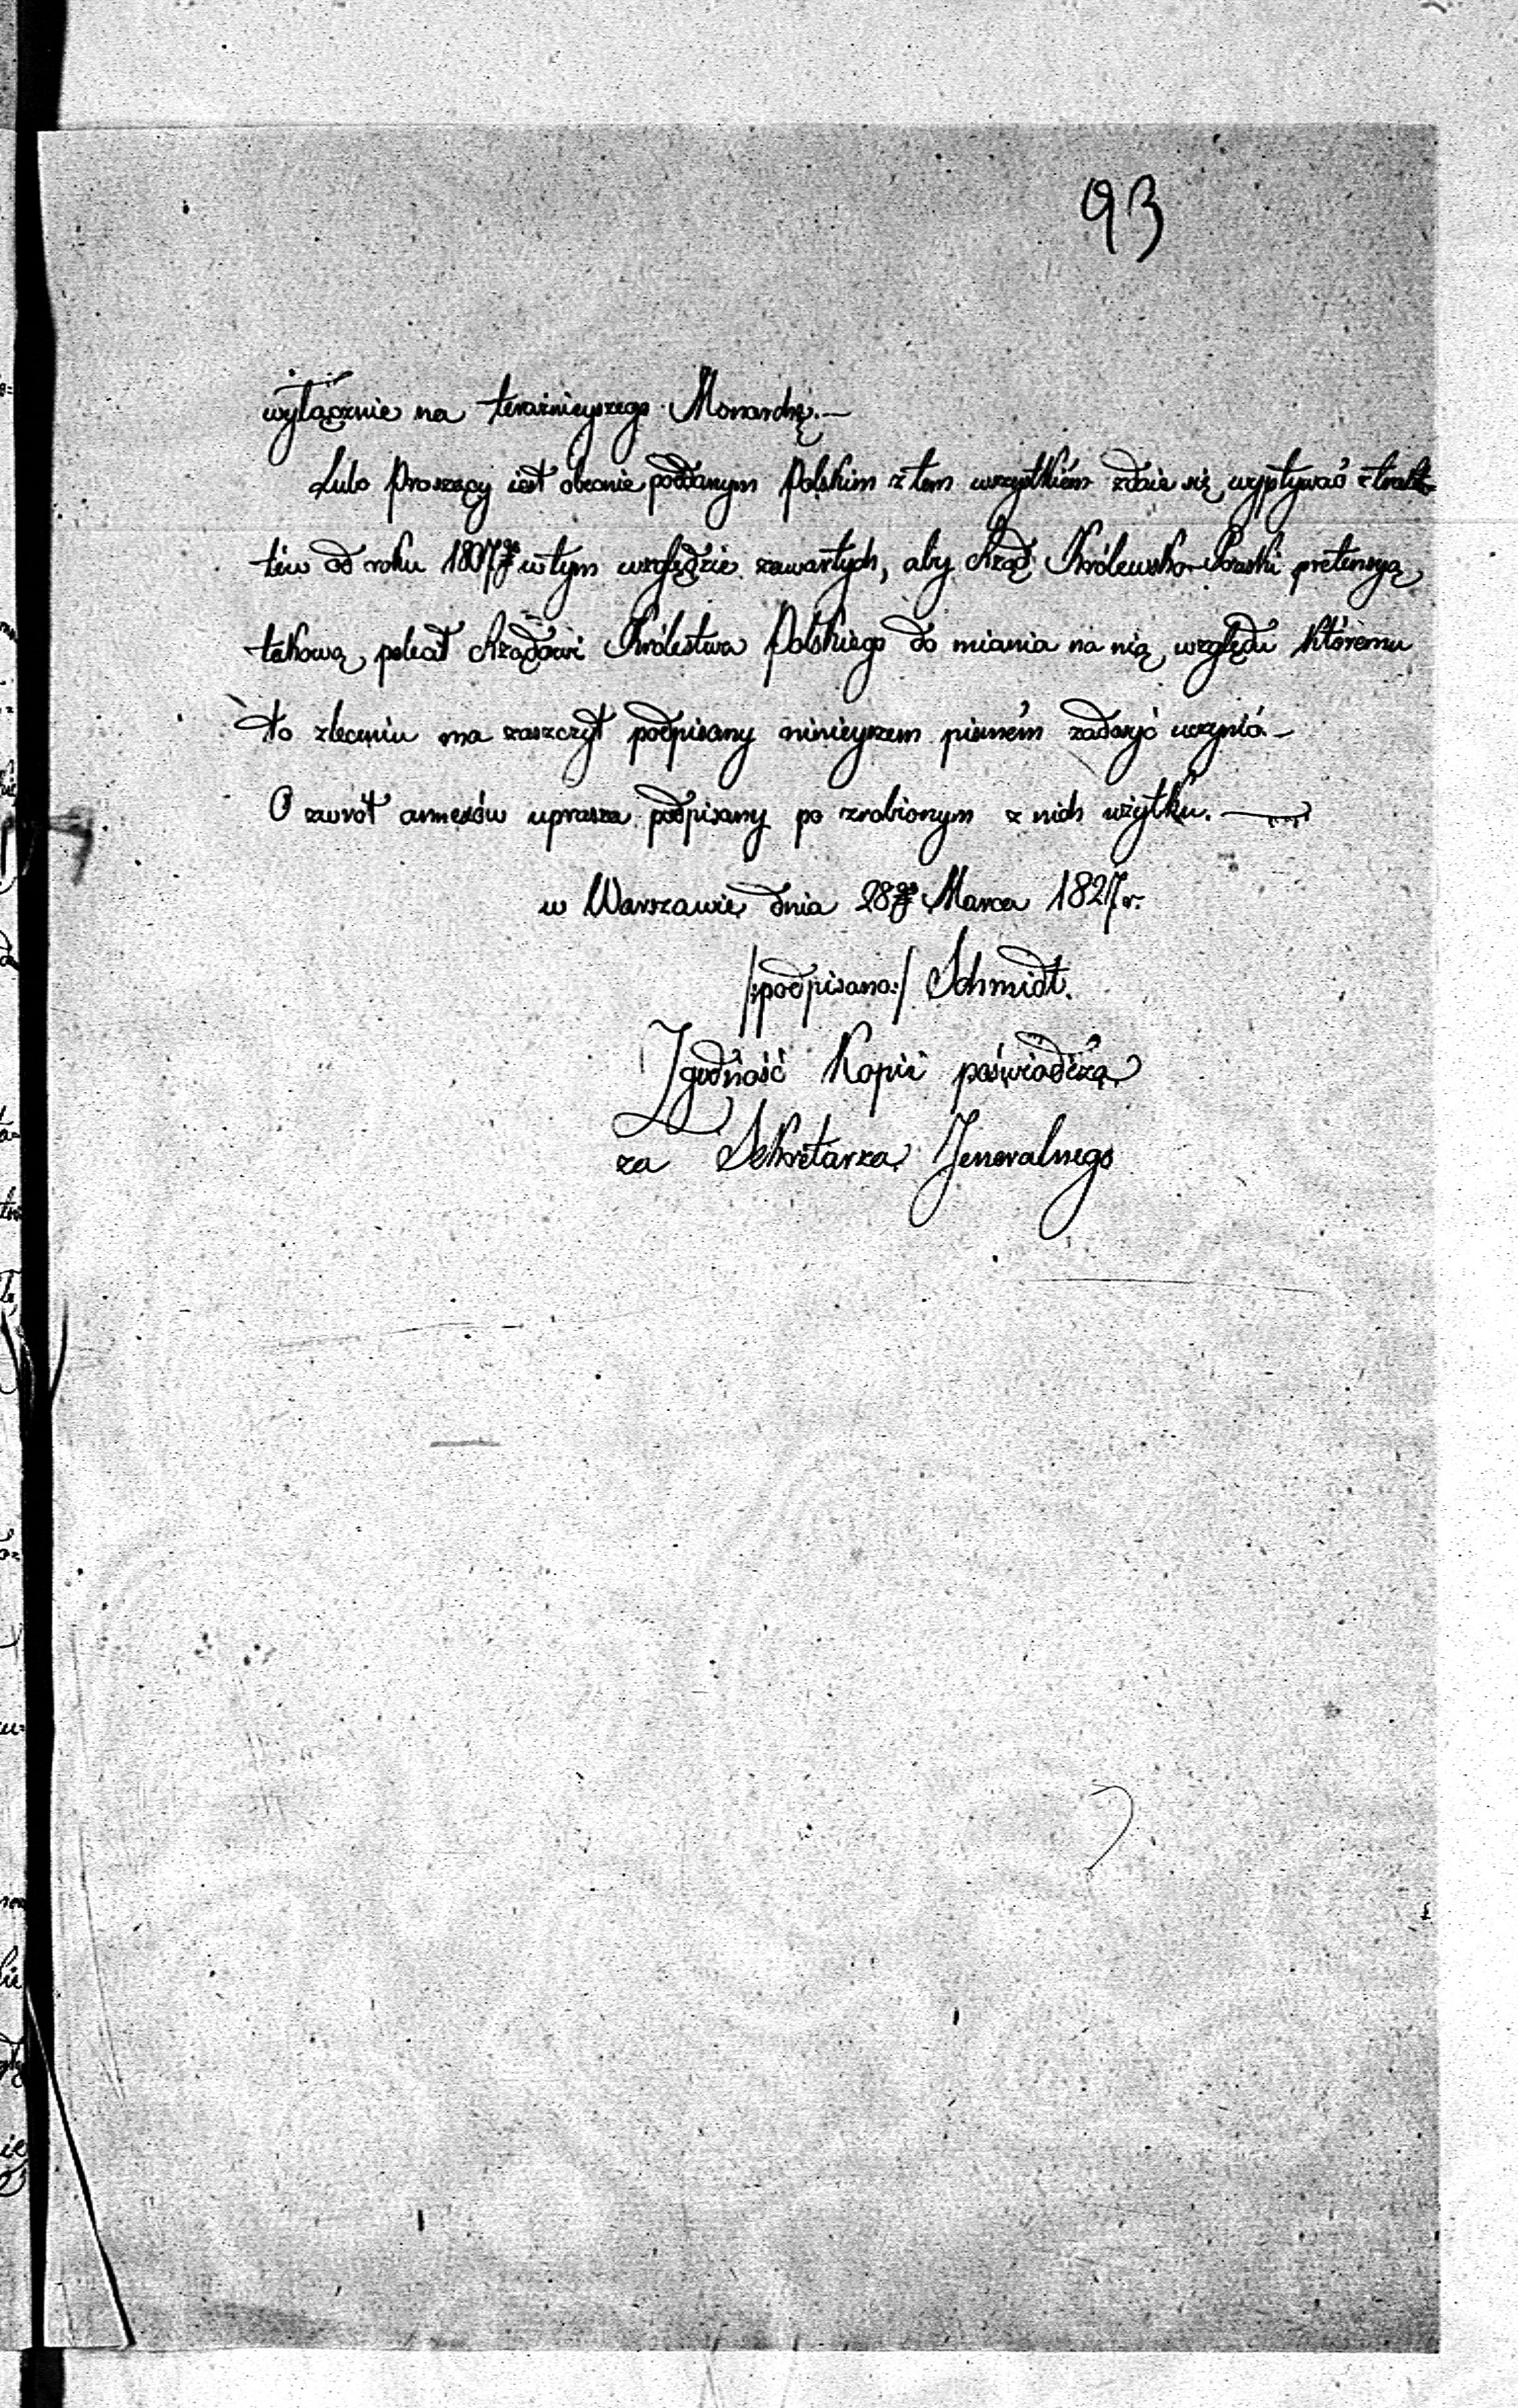 93
wyłącznie na teraźnieyszego Monarchę.—
Lubo Proszący iest obecnie poddanym Polskim z tem wszystkiém zdaie się wypływać z trakta-
tów od roku 1807go w tym względzie zawartych, aby Rząd Królewsko-Pruski pretensyą
takową polecał Rządowi Królestwa Polskiego do miania na nią względu któremu
to zleceniu ma zaszczyt podpisany ninieyszem pismém zadosyć uczynić.—
O zwrót annexów uprasza podpisany po zrobionym z nich użytku.—
w Warszawie dnia 28go Marca 1827 r.
/:podpisano:/ Schmidt.
Zgodność Kopii poświadcza
za Sekretarza Jeneralnego